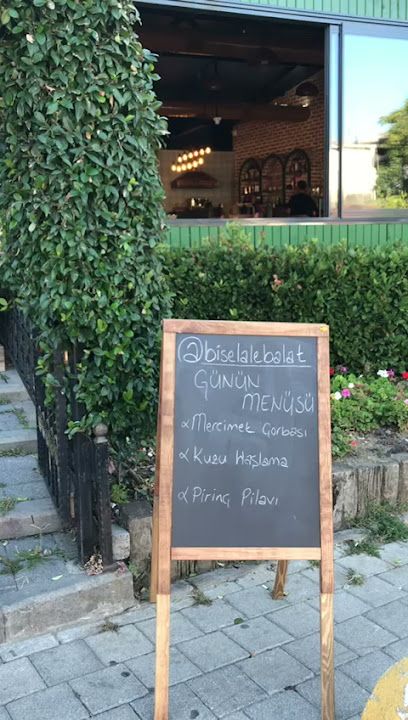 @biselalebalat
GÜNÜN
MENÜSÜ
∝ Mercimek Çorbası
∝ Kuzu Haşlama
∝ Pirinç Pilavı